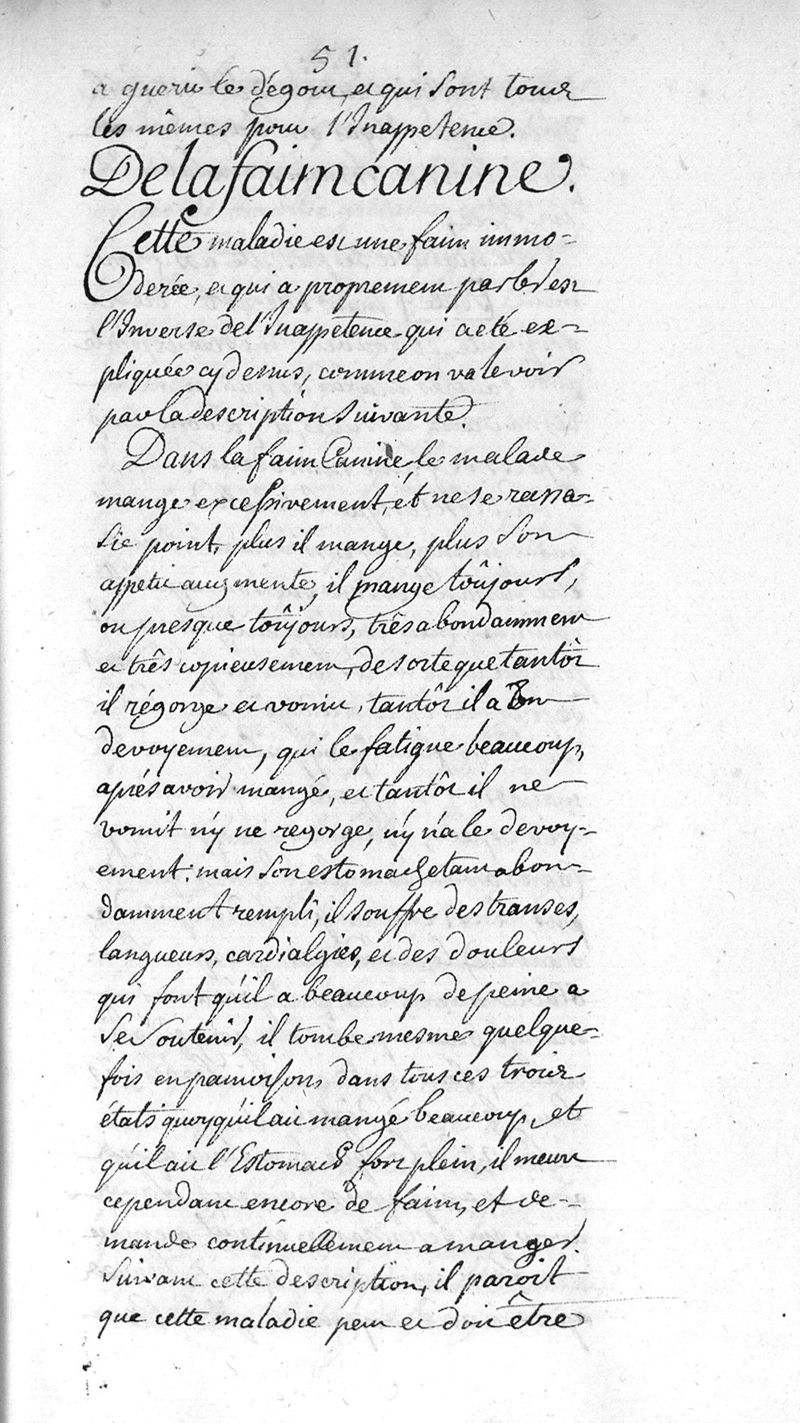 51.
a guerir le dégout, et qui sont tous
les mêmes pour l'Inappetence.
De la faim canine.
Cette maladie est une faim immo-
derée, et qui a proprement parler est
l'Inverse de l'Inappetence qui a eté ex-
pliquée cy dessus, comme on va le voir
par la description suivante.
Dans la faim Canine, le malade
mange excessivement, ét ne se rassa-
sie point, plus il mange, plus son
appetit augmente, il mange toûjours,
ou presque toûjours, très abondamment
et très copieusement, de sorte que tantôt
il régorge et vomit, tantôt il a un
devoyement, qui le fatigue beaucoup,
aprés avoir mangé, et tantôt il ne
vomit n'y ne regorge, n'y n'a le devoy-
ement: mais son estomach etant abon-
damment rempli, il souffre des transes,
langueurs, cardialgies, et des douleurs
qui font qu'il a beaucoup de peine a
se soutenir, il tombe mesme quelque-
fois en pamoison, dans tous ces trois
états quoy qu'il ait mangé beaucoup, et
qu'il ait l'Estomach fort plein, il meurt
cependant encore de faim, et de-
mande continuellement a manger.
Suivant cette description, il paroit
que cette maladie peut et doit être